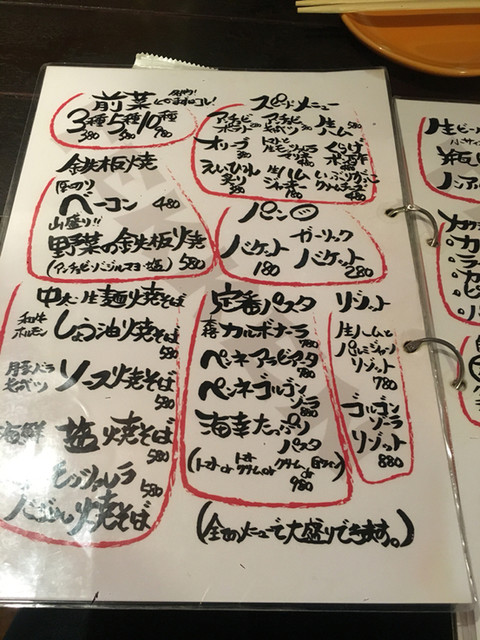 前菜
とりあえずはコレ!
3種 5種 10種
380 580 980
スピードメニュー
アンチョビ
ポテト
アンチョビ
キャベツ
生
ハム
オリーブ
トマトと
生モッツァレラ
くらげ
ポン酢
えいひれ
炙り
生ハム
いぶりがっこ
クリームチーズ
鉄板焼
厚切り
ベーコン 480
山盛り!!
野菜の鉄板焼
(アンチョビ・バジルマヨ・塩) 580
パン
バケット
180
ガーリック
バケット
280
中太生麺焼そば
和牛
ホルモン
しょう油焼そば
580
豚バラ
キャベツ
ソース焼そば
580
海鮮
塩焼そば
580
モッツァレラ
580
バジル焼そば
定番パスタ
カルボナーラ
780
ペンネアラビアータ
780
ペンネゴルゴン
ゾーラ
880
海幸たっぷり
パスタ
(トマト or トマトクリーム or クリーム or 白ワイン)
980
リゾット
生ハムと
パルミジャーノ
リゾット
780
ゴルゴン
ゾーラ
リゾット
880
(全メニューで大盛りできます。)
生ビール